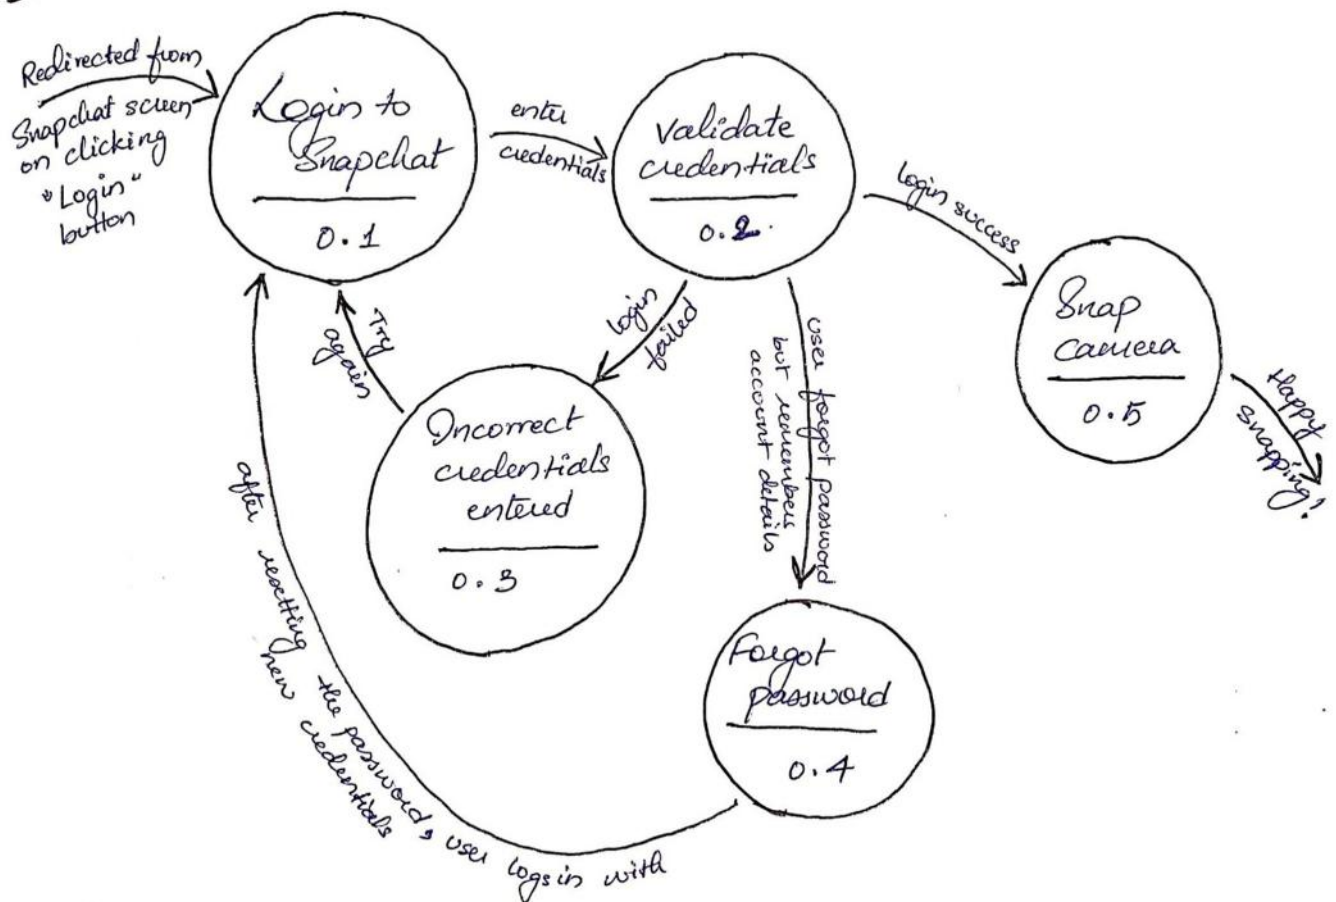 Redirected from
Snapchat screen
on clicking
"Login"
button
Login to
Snapchat
0.1
enter
credentials
Validate
credentials
0.2.
login success
Snap
camera
0.5
Happy
Snapping!
login
failed
Try
again
Incorrect
credentials
entered
0.3
user forgot password
but remembers
account details
Forgot
password
0.4
after resetting the password, user logs in with
new credentials